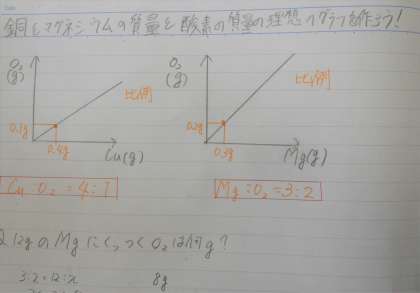 銅とマグネシウムの質量と酸素の質量の理想のグラフを作ろう!
O₂
(g)
比例
0.1g
0.4g
Cu(g)
O₂
(g)
比例
0.2g
0.3g
Mg(g)
Cu:O₂=4:1
Mg:O₂=3:2
Q.12gのMgにくっつくO₂は何g?
3:2=12:x
8g